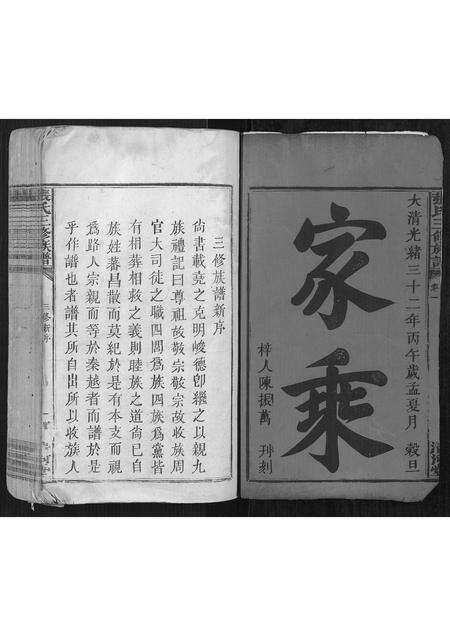 大清光緒三十二年丙午歲孟夏月 穀旦
家乘
梓人陳振萬 刊刻
三修族譜新序
尙書載堯之克明峻德卽繼之以親九
族禮記曰尊祖故敬宗敬宗故收族周
官大司徒之職四閭爲族四族爲黨皆
有相葬相救之義則睦族之道尙已自
族姓蕃昌散而莫紀於是有本支而視
爲路人宗親而等於秦越者而譜於是
乎作譜也者譜其所自出所以收族人
張氏三修族譜
三修新序